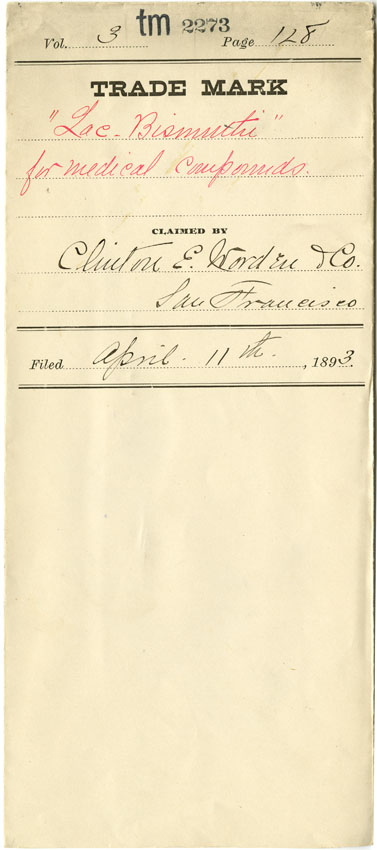 tm 2273
Vol. 3 Page 128
TRADE MARK
"Lac-Bismuthi"
for medical compounds.
CLAIMED BY
Clinton E. Worden & Co.
San Francisco
Filed April. 11th, 1893.